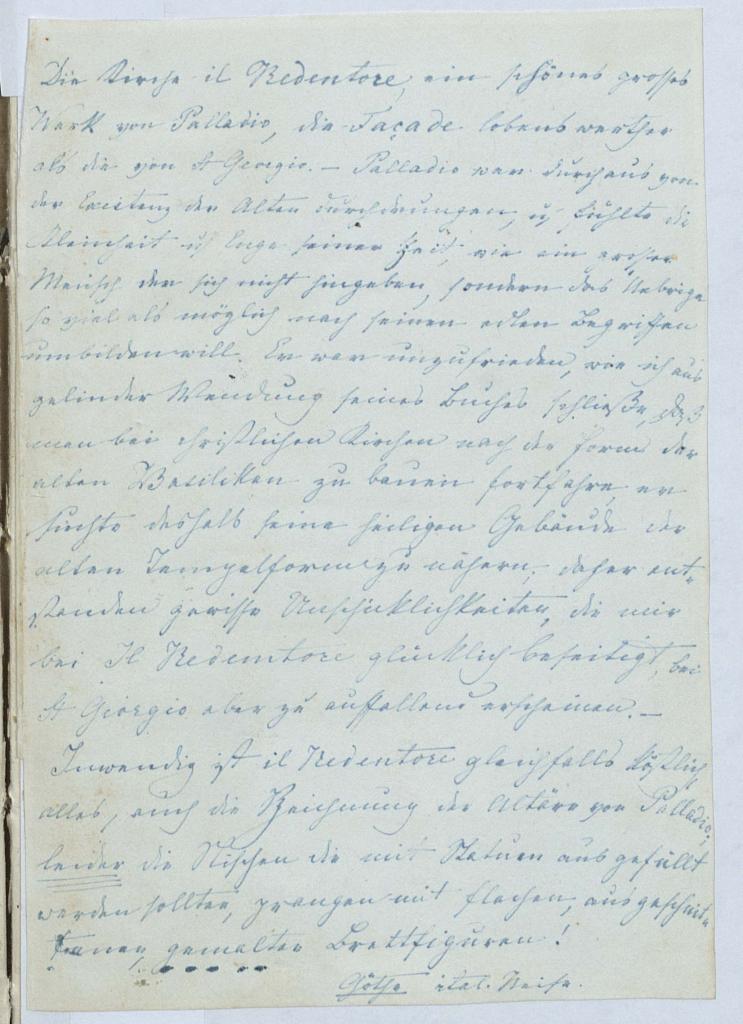 Die Kirche il Redentore, ein schönes grosses
Werk von Palladio, die Façade lobenswerther
als die von St Georgio. — Palladio war durchaus von
der Existenz der Alten durchdrungen, u fühlte die
Kleinheit u Enge seiner Zeit, wie ein grosser
Mensch der sich nicht hingeben, sondern das Uebrige
so viel als möglich nach seinen edlen Begriffen
umbilden will. Er war unzufrieden, wie ich aus
gelinder Wendung seines Buches schließe, daß
man bei christlichen Kirchen nach der Form der
alten Basiliken zu bauen fortfahre, er
suchte deshalb seine heiligen Gebäude der
alten Tempelform zu nähern; daher ent-
standen gewisse Unschicklichkeiten, die mir
bei Il Redentore glücklich beseitigt, bei
St Giorgio aber zu auffallend erscheinen. —
Inwendig ist il Redentore gleichfalls köstlich
alles, auch die Zeichnung der Altäre von Palladio;
leider die Nischen die mit Statuen ausgefüllt
werden sollten, prangen mit flachen, ausgeschnit-
tenen, gemalten Brettfiguren!
Göthe ital. Reise.